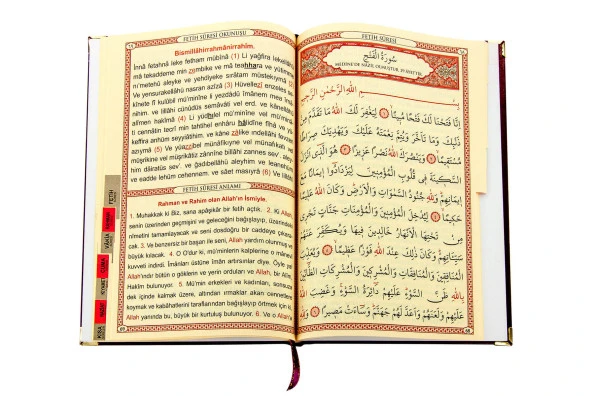 FETİH SÛRESİ OKUNUŞU
Bismillâhirrahmânirrahîm.
İnnâ fetahnâ leke fethan mübînâ (1) Li yağfira lekellâhü
mâ tekaddeme min zenbike ve mâ teahhara ve yütimme
ni'metehû aleyke ve yehdiyeke sırâtam müstekıymâ
Ve yensurakellâhü nasran azîzâ (3) Hüvellezî enzeles
kînete fî kulûbil mü'minîne li yezdâdû îmânem mea îmâ
nihim. ve lillâhi cünûdüs semâvâti vel erd. ve kânellâ
alîmen hakîmâ (4) Li yüdhilel mü'minîne vel mü'minâ
ti cennâtin tecrî min tahtihel enhâru hâlidîne fîhâ ve yü
keffira anhüm seyyiâtihim. ve kâne zâlike indellâhi fevzen
azıymâ (5) Ve yüazzibel münâfikıyne vel münâfikati vel
müşrikîne vel müşrikâtiz zânnîne billâhi zannes sev'. aley
him dâiratüs sev' ve ğadıbellâhü aleyhim ve leanehüm
ve eadde lehüm cehennem. ve sâet masıyrâ (6) Ve lillâhi
FETİH SÛRESİ ANLAMI
Rahman ve Rahim olan Allah'ın İsmiyle.
1. Muhakkak ki Biz, sana apaçık bir fetih açtık. 2. Ki Allah,
senin üzerinden geçmişi ve geleceğini bağışlayıp, üzerinden
nîmetini tamamlayacak ve seni dosdoğru bir caddeye çıkara
cak. 3. Ve benzersiz bir başarı ile seni, Allah yardım olunmaz
büyük kılacak. 4. O O'dur ki, mü'minlerin kalplerine o mânevî
kuvveti indirdi. Îmânları üstüne îmân artırsınlar diye. Öyle ya
Allah'ındır bütün o göklerin ve yerin orduları ve Allah, bir Alîm
Hakîm bulunuyor. 5. Mü'min erkekleri ve kadınları, sonsuza
dek içinde kalmak üzere, altından ırmaklar akan cennetlere
koymak ve kabâhatlerini taraflarından bağışlayıp örtmek için ki,
Allah yanında bu, büyük bir kurtuluş bulunuyor. 6. Ve o
FETİH
VÂKIA
CUMA
KIYAMET
KISA
FETİH SÛRESİ
سُورَةُ الْفَتْحِ
MEDİNE'DE NAZİL OLMUŞTUR. 29 AYETTİR.
بِسْمِ اللّٰهِ الرَّحْمٰنِ الرَّحِيمِ
اِنَّا فَتَحْنَا لَكَ فَتْحًا مُبِينًا ۝ لِيَغْفِرَ لَكَ اللّٰهُ مَا تَقَدَّمَ مِنْ
ذَنْبِكَ وَمَا تَاَخَّرَ وَيُتِمَّ نِعْمَتَهُ عَلَيْكَ وَيَهْدِيَكَ صِرَاطًا
مُسْتَقِيمًا ۝ وَيَنْصُرَكَ اللّٰهُ نَصْرًا عَزِيزًا ۝ هُوَ الَّذِى اَنْزَلَ
السَّكِينَةَ فِى قُلُوبِ الْمُؤْمِنِينَ لِيَزْدَادُوا اِيمَانًا مَعَ
اِيمَانِهِمْ وَلِلّٰهِ جُنُودُ السَّمٰوَاتِ وَالْاَرْضِ وَكَانَ اللّٰهُ عَلِيمًا
حَكِيمًا ۝ لِيُدْخِلَ الْمُؤْمِنِينَ وَالْمُؤْمِنَاتِ جَنَّاتٍ تَجْرِى
مِنْ تَحْتِهَا الْاَنْهَارُ خَالِدِينَ فِيهَا وَيُكَفِّرَ عَنْهُمْ
سَيِّئَاتِهِمْ وَكَانَ ذٰلِكَ عِنْدَ اللّٰهِ فَوْزًا عَظِيمًا ۝ وَيُعَذِّبَ
الْمُنَافِقِينَ وَالْمُنَافِقَاتِ وَالْمُشْرِكِينَ وَالْمُشْرِكَاتِ الظَّانِّينَ
بِاللّٰهِ ظَنَّ السَّوْءِ عَلَيْهِمْ دَائِرَةُ السَّوْءِ وَغَضِبَ اللّٰهُ
عَلَيْهِمْ وَلَعَنَهُمْ وَاَعَدَّ لَهُمْ جَهَنَّمَ وَسَاءَتْ مَصِيرًا ۝